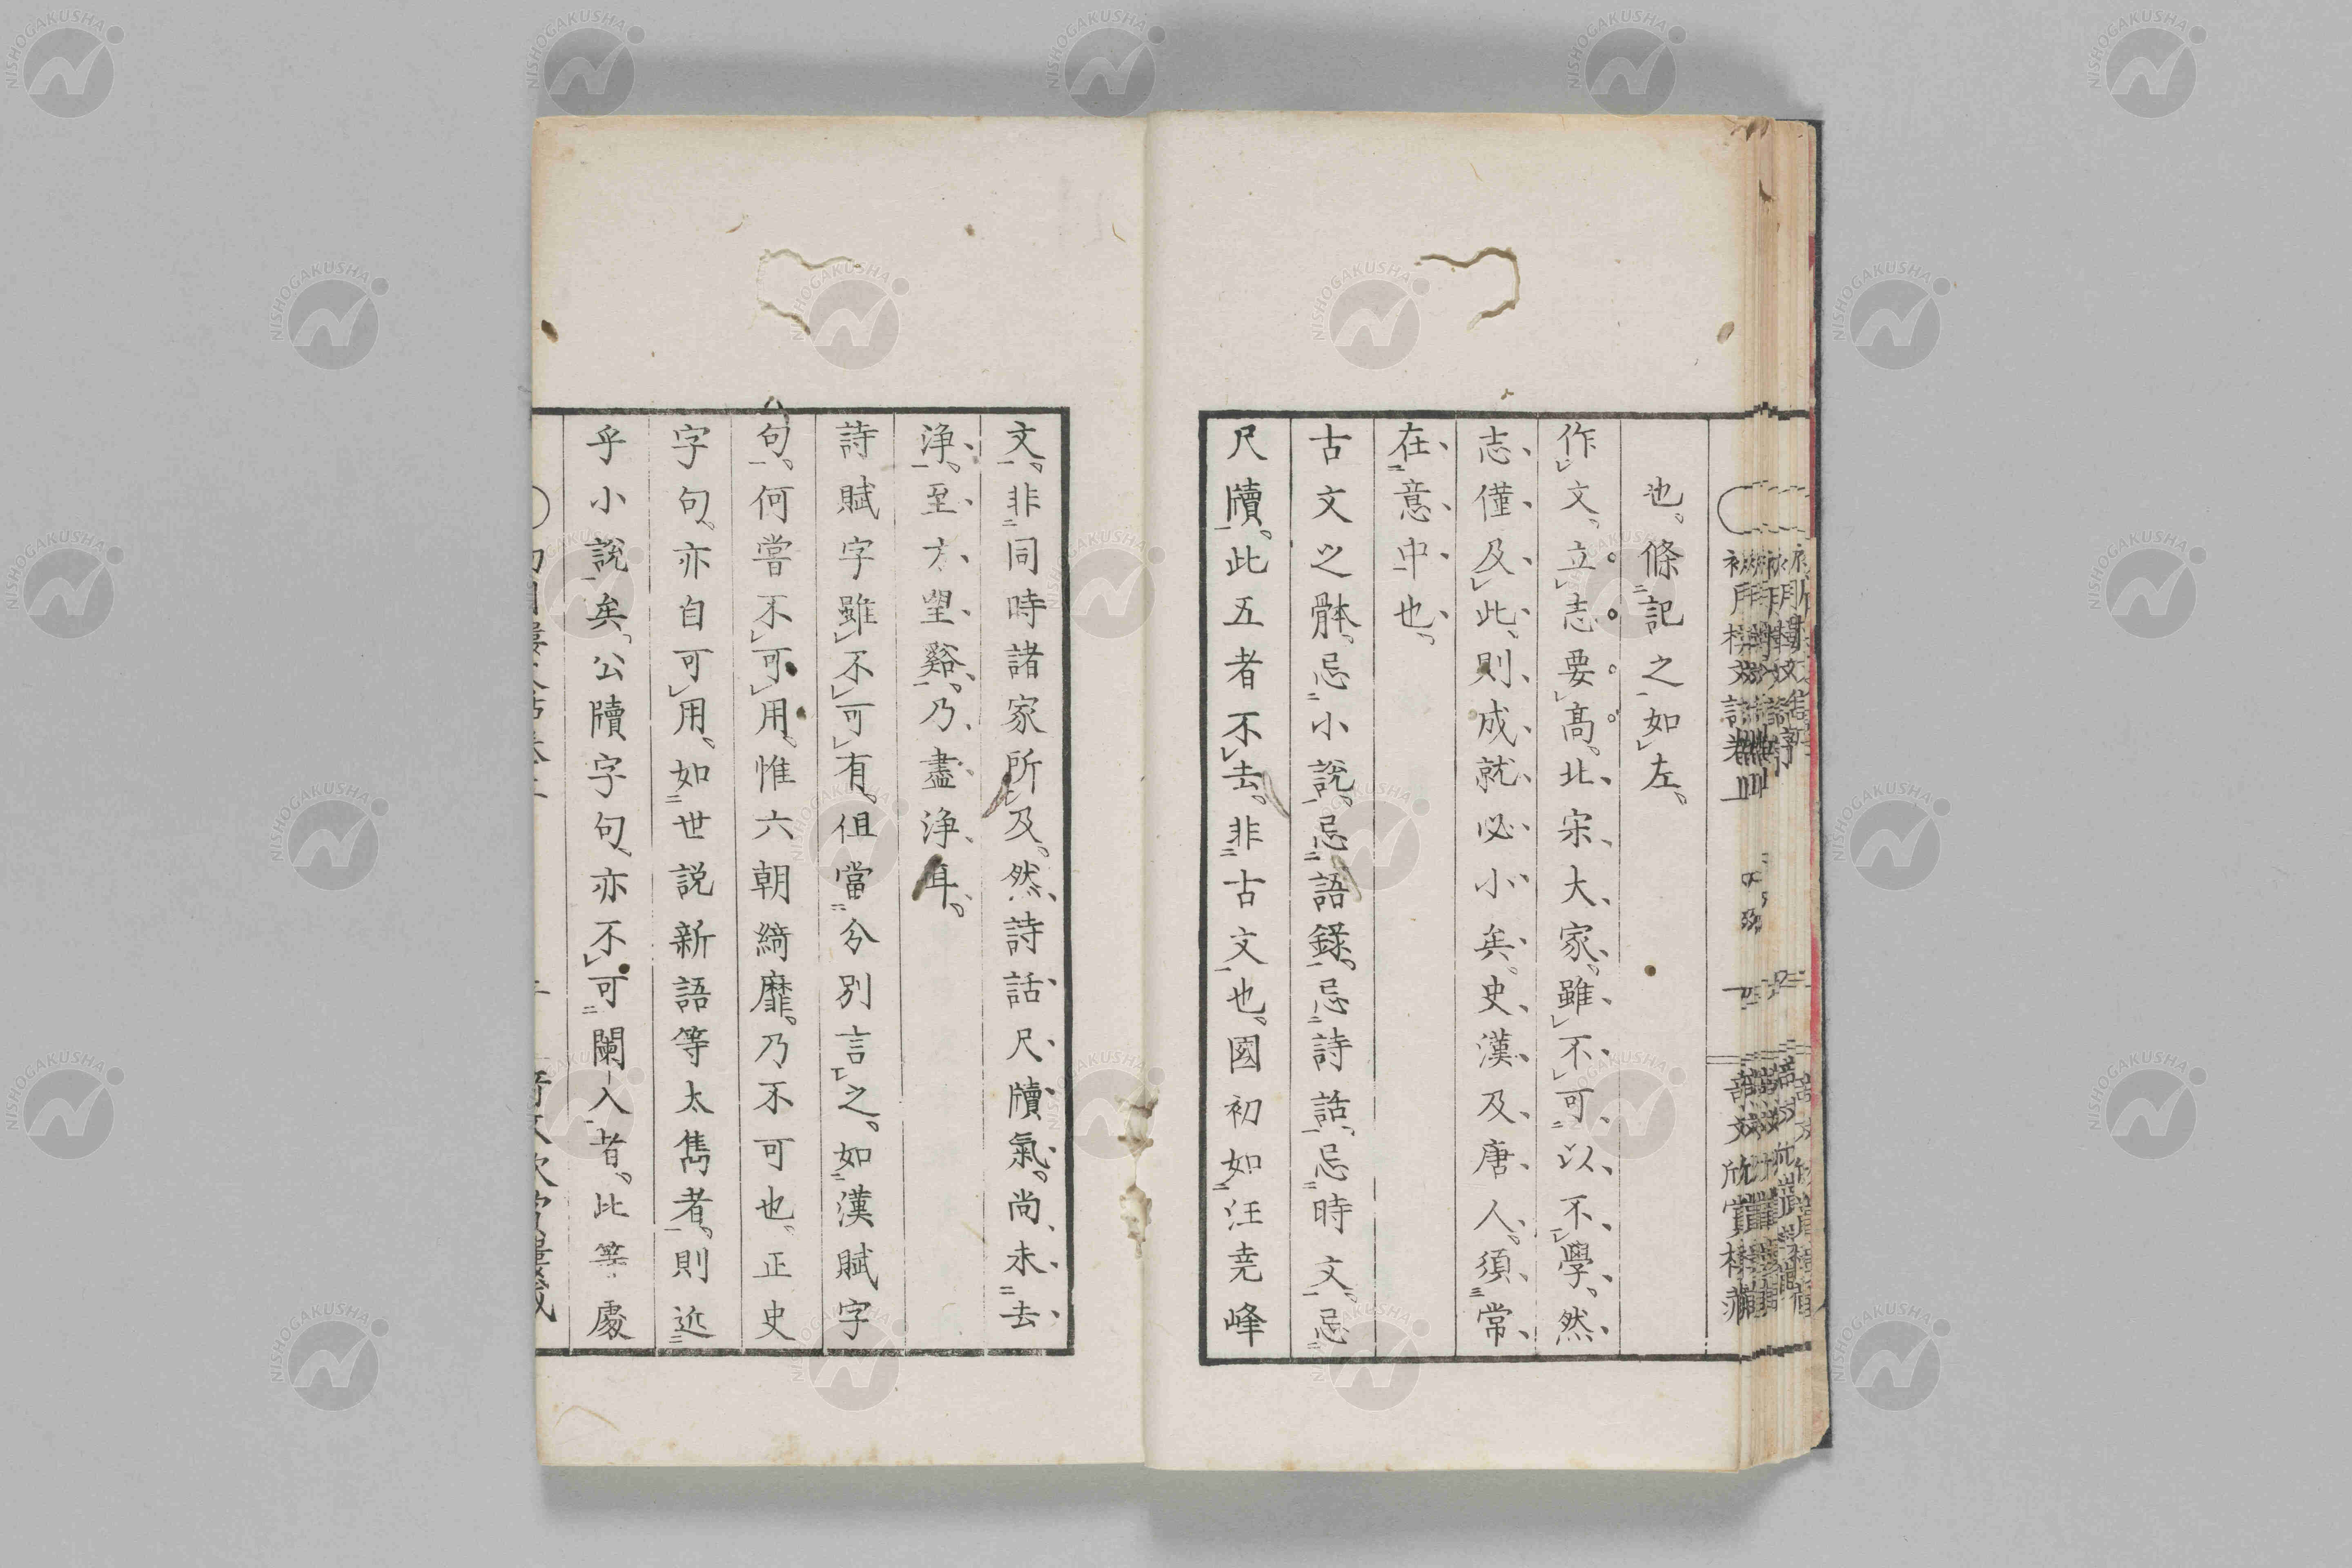 也。條記之如左。
作文。立志要高。北宋大家。雖不可以不學、然
志僅及此、則成就必小矣。史漢及唐人。須常
在意中也。
古文之體。忌小說。忌語錄。忌詩話、忌時文。忌
尺牘。此五者不去。非古文也。國初如汪堯峰
文。非同時諸家所及。然詩話尺牘氣。尚未去
淨。至方望谿。乃盡淨耳。
詩賦字雖不可有。但當分別言之。如漢賦字
句。何嘗不可用。惟六朝綺靡。乃不可也、正史
字句。亦自可用。如世說新語等太雋者。則近
乎小說矣。公牘字句、亦不可闌入者。此等處
NISHOGAKUSHA